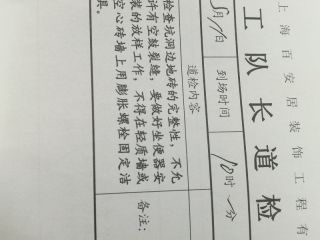 上海百安居装饰工程有
工队长道检
5月 日 到场时间 10时 分
道检内容
检查坑洞边地砖的完整性，不允
许有空鼓裂缝，要做好坐便器安
装的放样工作，不得在轻质墙或
空心砖墙上用膨胀螺栓固定洁
具。
备注：